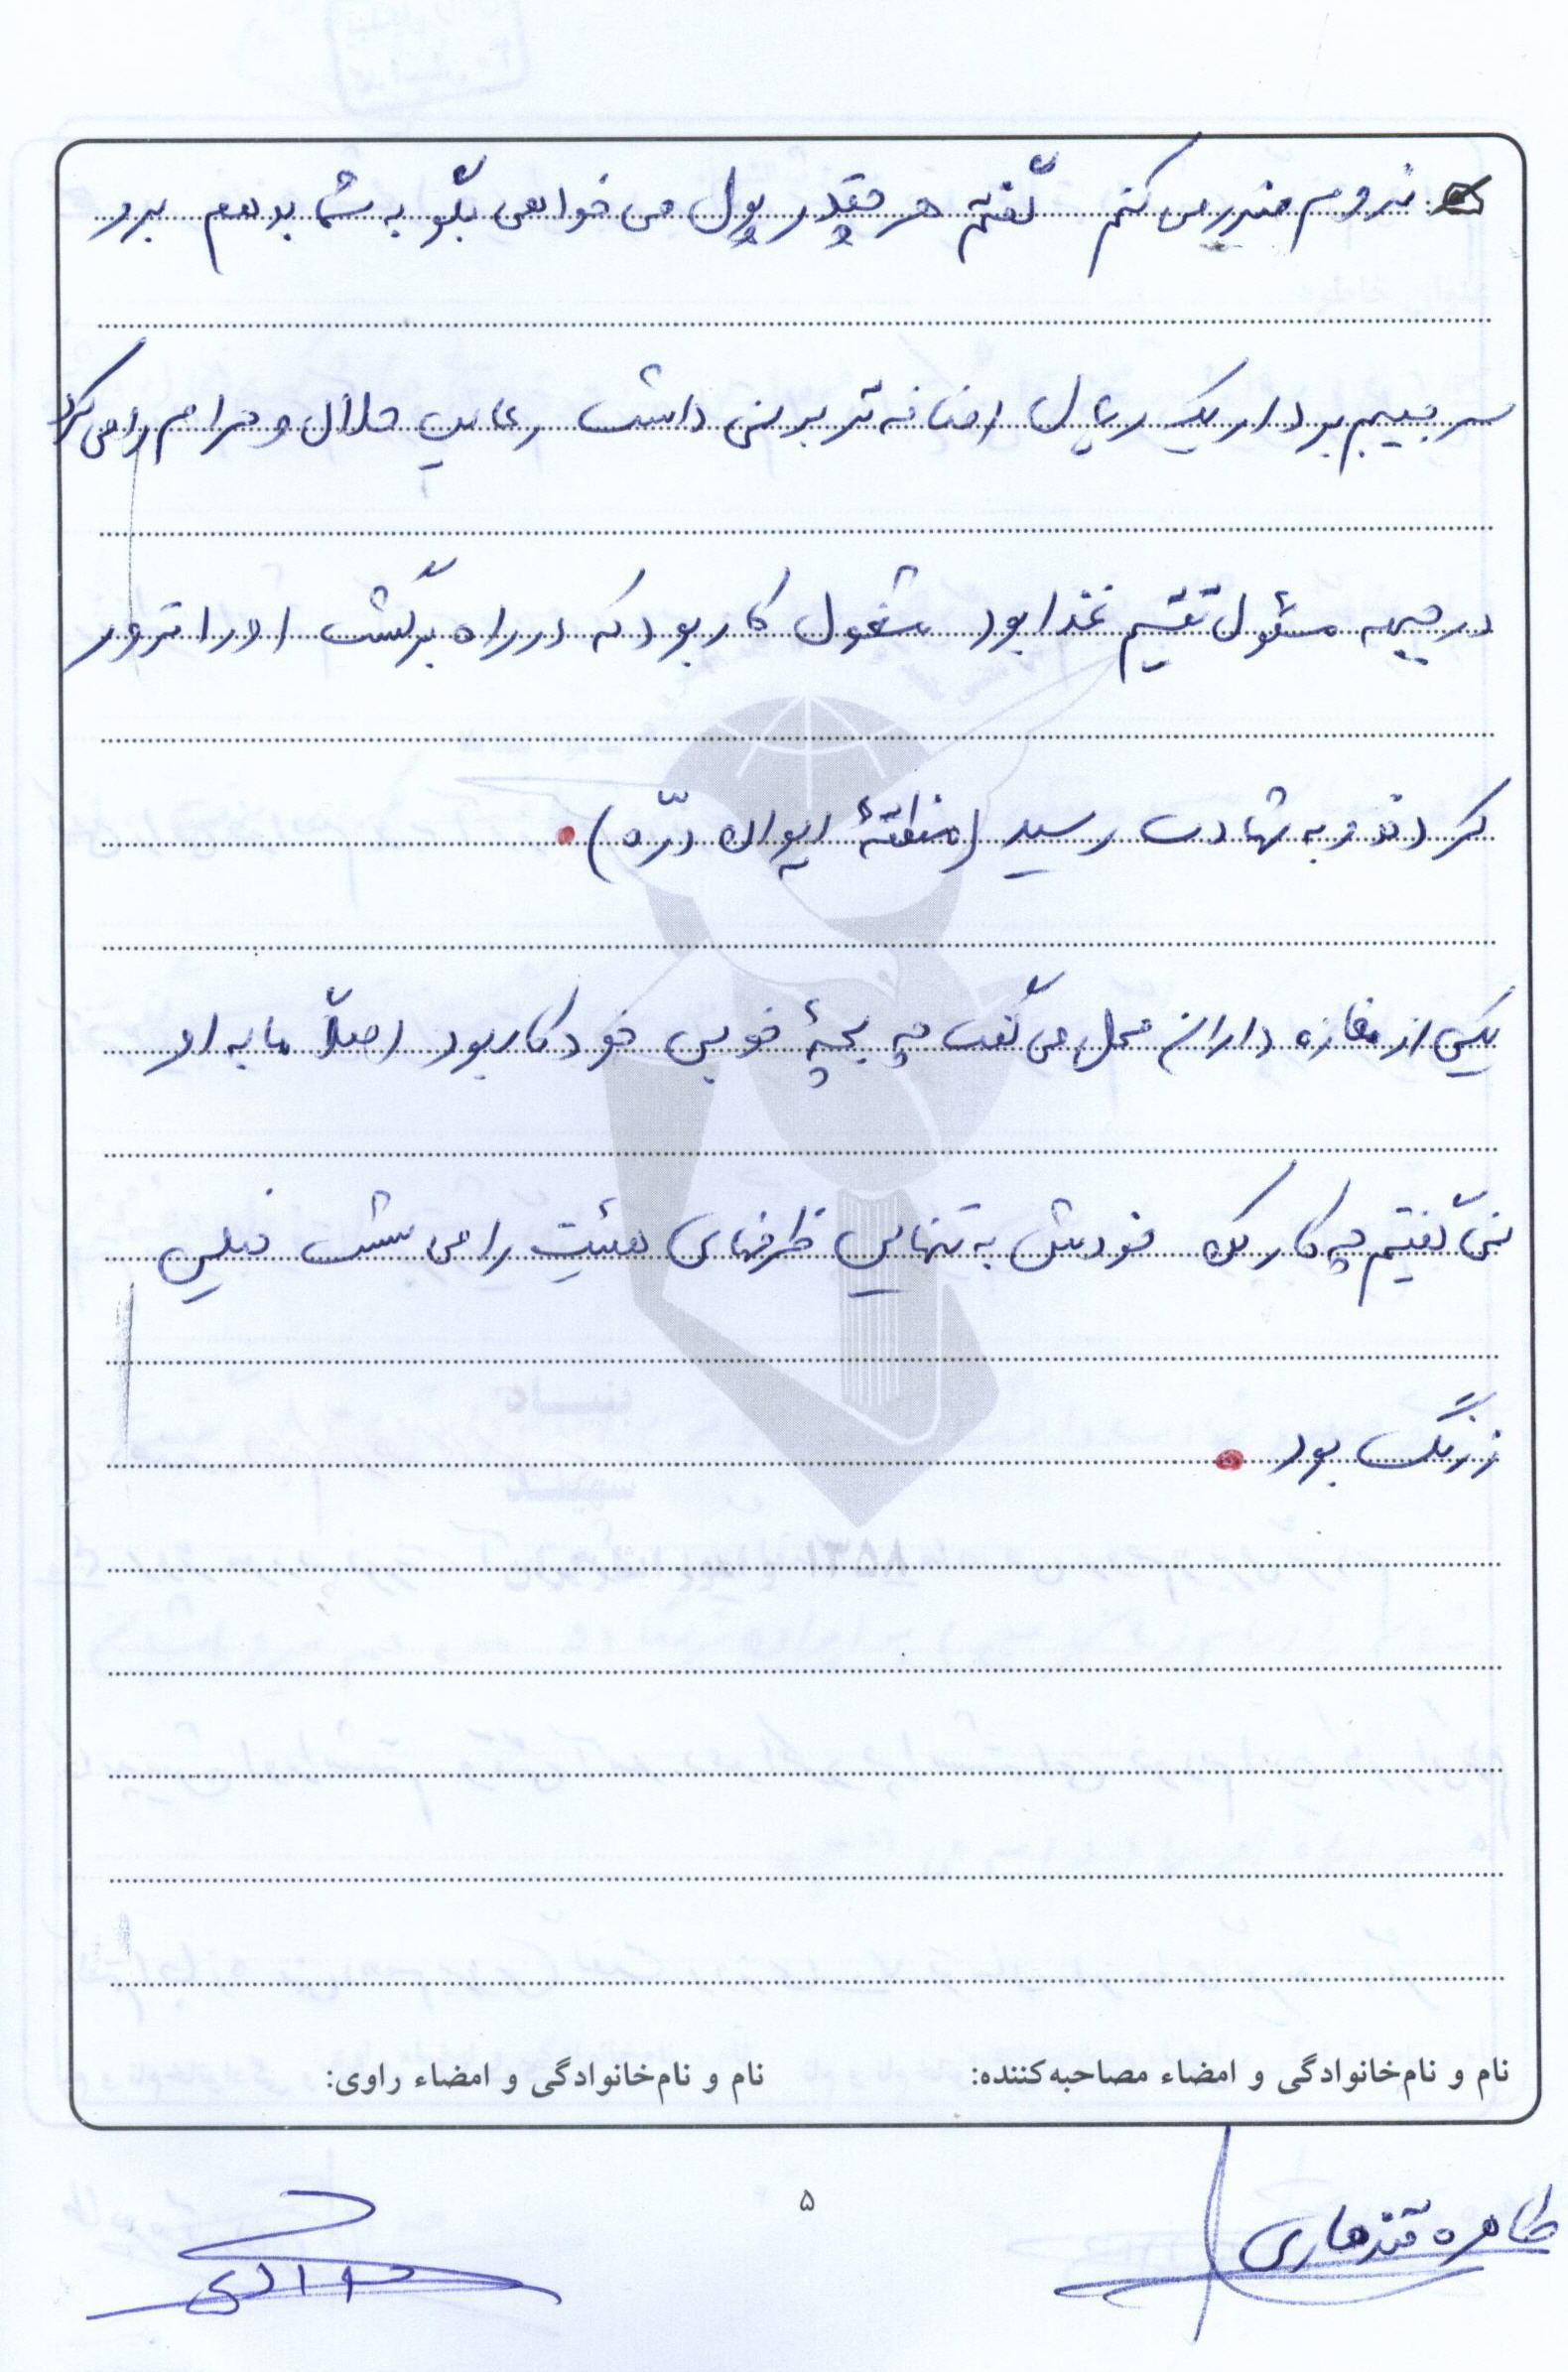 نروم ضرر می کنم گفتم هر چقدر پول می خواهی بگو به شما بدهم برو
سر جیبم بردار یک ریال اضافه تر بر نمی داشت رعایت حلال و حرام را می کرد
در جبهه مسئول تقسیم غذا بود مشغول کار بود که در راه برگشت او را ترور
کردند و به شهادت رسید (منطقهٔ ایوان درّه)
یکی از مغازه داران محل می گفت چه بچهٔ خوبی خودکار بود اصلاً ما به او
نمی گفتیم چه کار بکن خودش به تنهایی ظرفهای هیئت را می شست خیلی
زرنگ بود
نام و نام‌خانوادگی و امضاء مصاحبه‌کننده: نام و نام‌خانوادگی و امضاء راوی:
۵
طاهره قندهاری